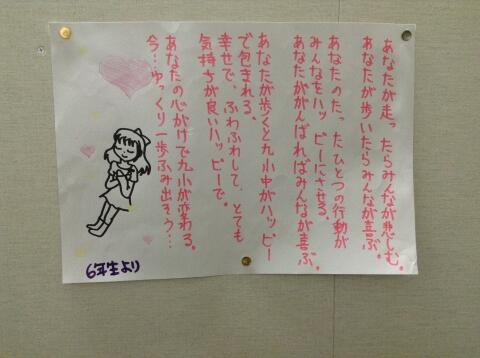 あなたが走ったらみんなが悲しむ。
あなたが歩いたらみんなが喜ぶ。
あなたのたったひとつの行動が
みんなをハッピーにさせる。
あなたががんばればみんなが喜ぶ。
あなたが歩くと九小中がハッピー
で包まれる、
幸せで、ふわふわして、とても
気持ちが良いハッピーで。
あなたの心がけで九小が変わる。
今…ゆっくり一歩ふみ出そう…
6年生より